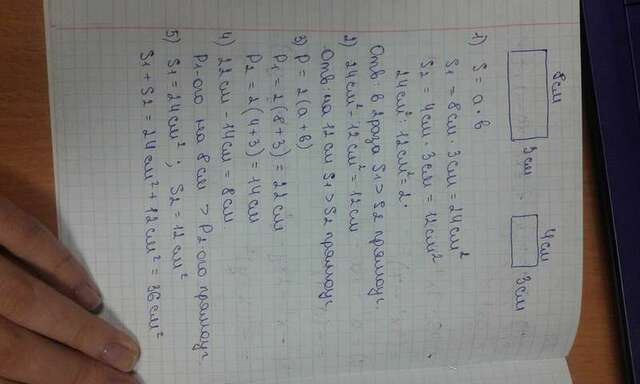 8см
3см
4см
3см
1) S = a · b
S1 = 8см · 3см = 24см²
S2 = 4см · 3см = 12см²
24см² : 12см² = 2.
Отв: в 2 раза S1 > S2 прямоуг.
2) 24см² - 12см² = 12см
Отв: на 12 см S1 > S2 прямоуг.
3) P = 2(a + b)
P1 = 2(8 + 3) = 22см
P2 = 2(4 + 3) = 14см
4) 22см - 14см = 8см.
P1-ого на 8см > P2 ого прямоуг.
5) S1 = 24см² ; S2 = 12см²
S1 + S2 = 24см² + 12см² = 36см²